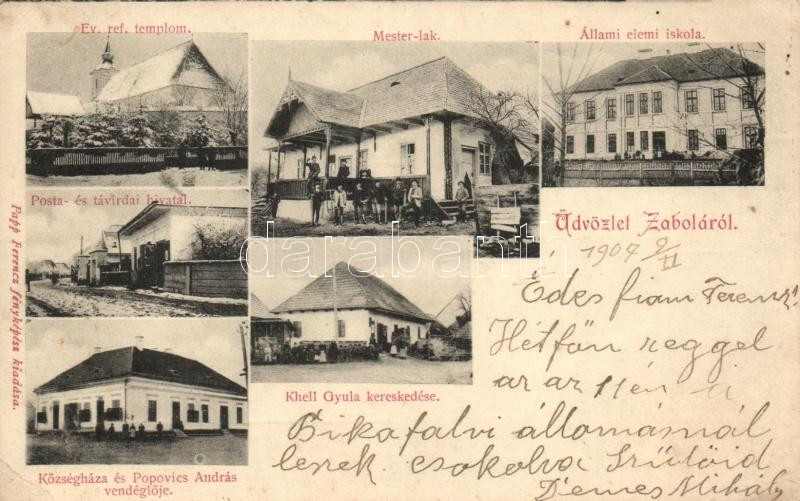 Ev. ref. templom.
Mester-lak.
Állami elemi iskola.
Posta- és távirdai hivatal.
Üdvözlet Zaboláról.
1907 9/II
Édes fiam Ferencz!
Hétfőn reggel
az az 11én a
Bikafalvi állomásnál
leszek. csokolva Szülöid
Demes Mihály
Khell Gyula kereskedése.
Községháza és Popovics András
vendéglője.
Papp Ferencz fényképész kiadása.
darabanth.com